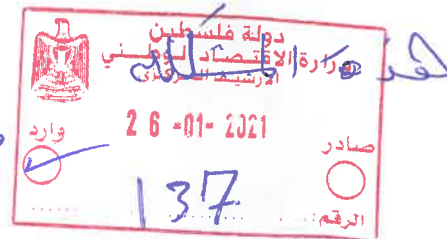 دولة فلسطين
وزارة الاقتصاد الوطني
الأرشيف المركزي
26-01-2021
صادر
وارد
137
الرقم: